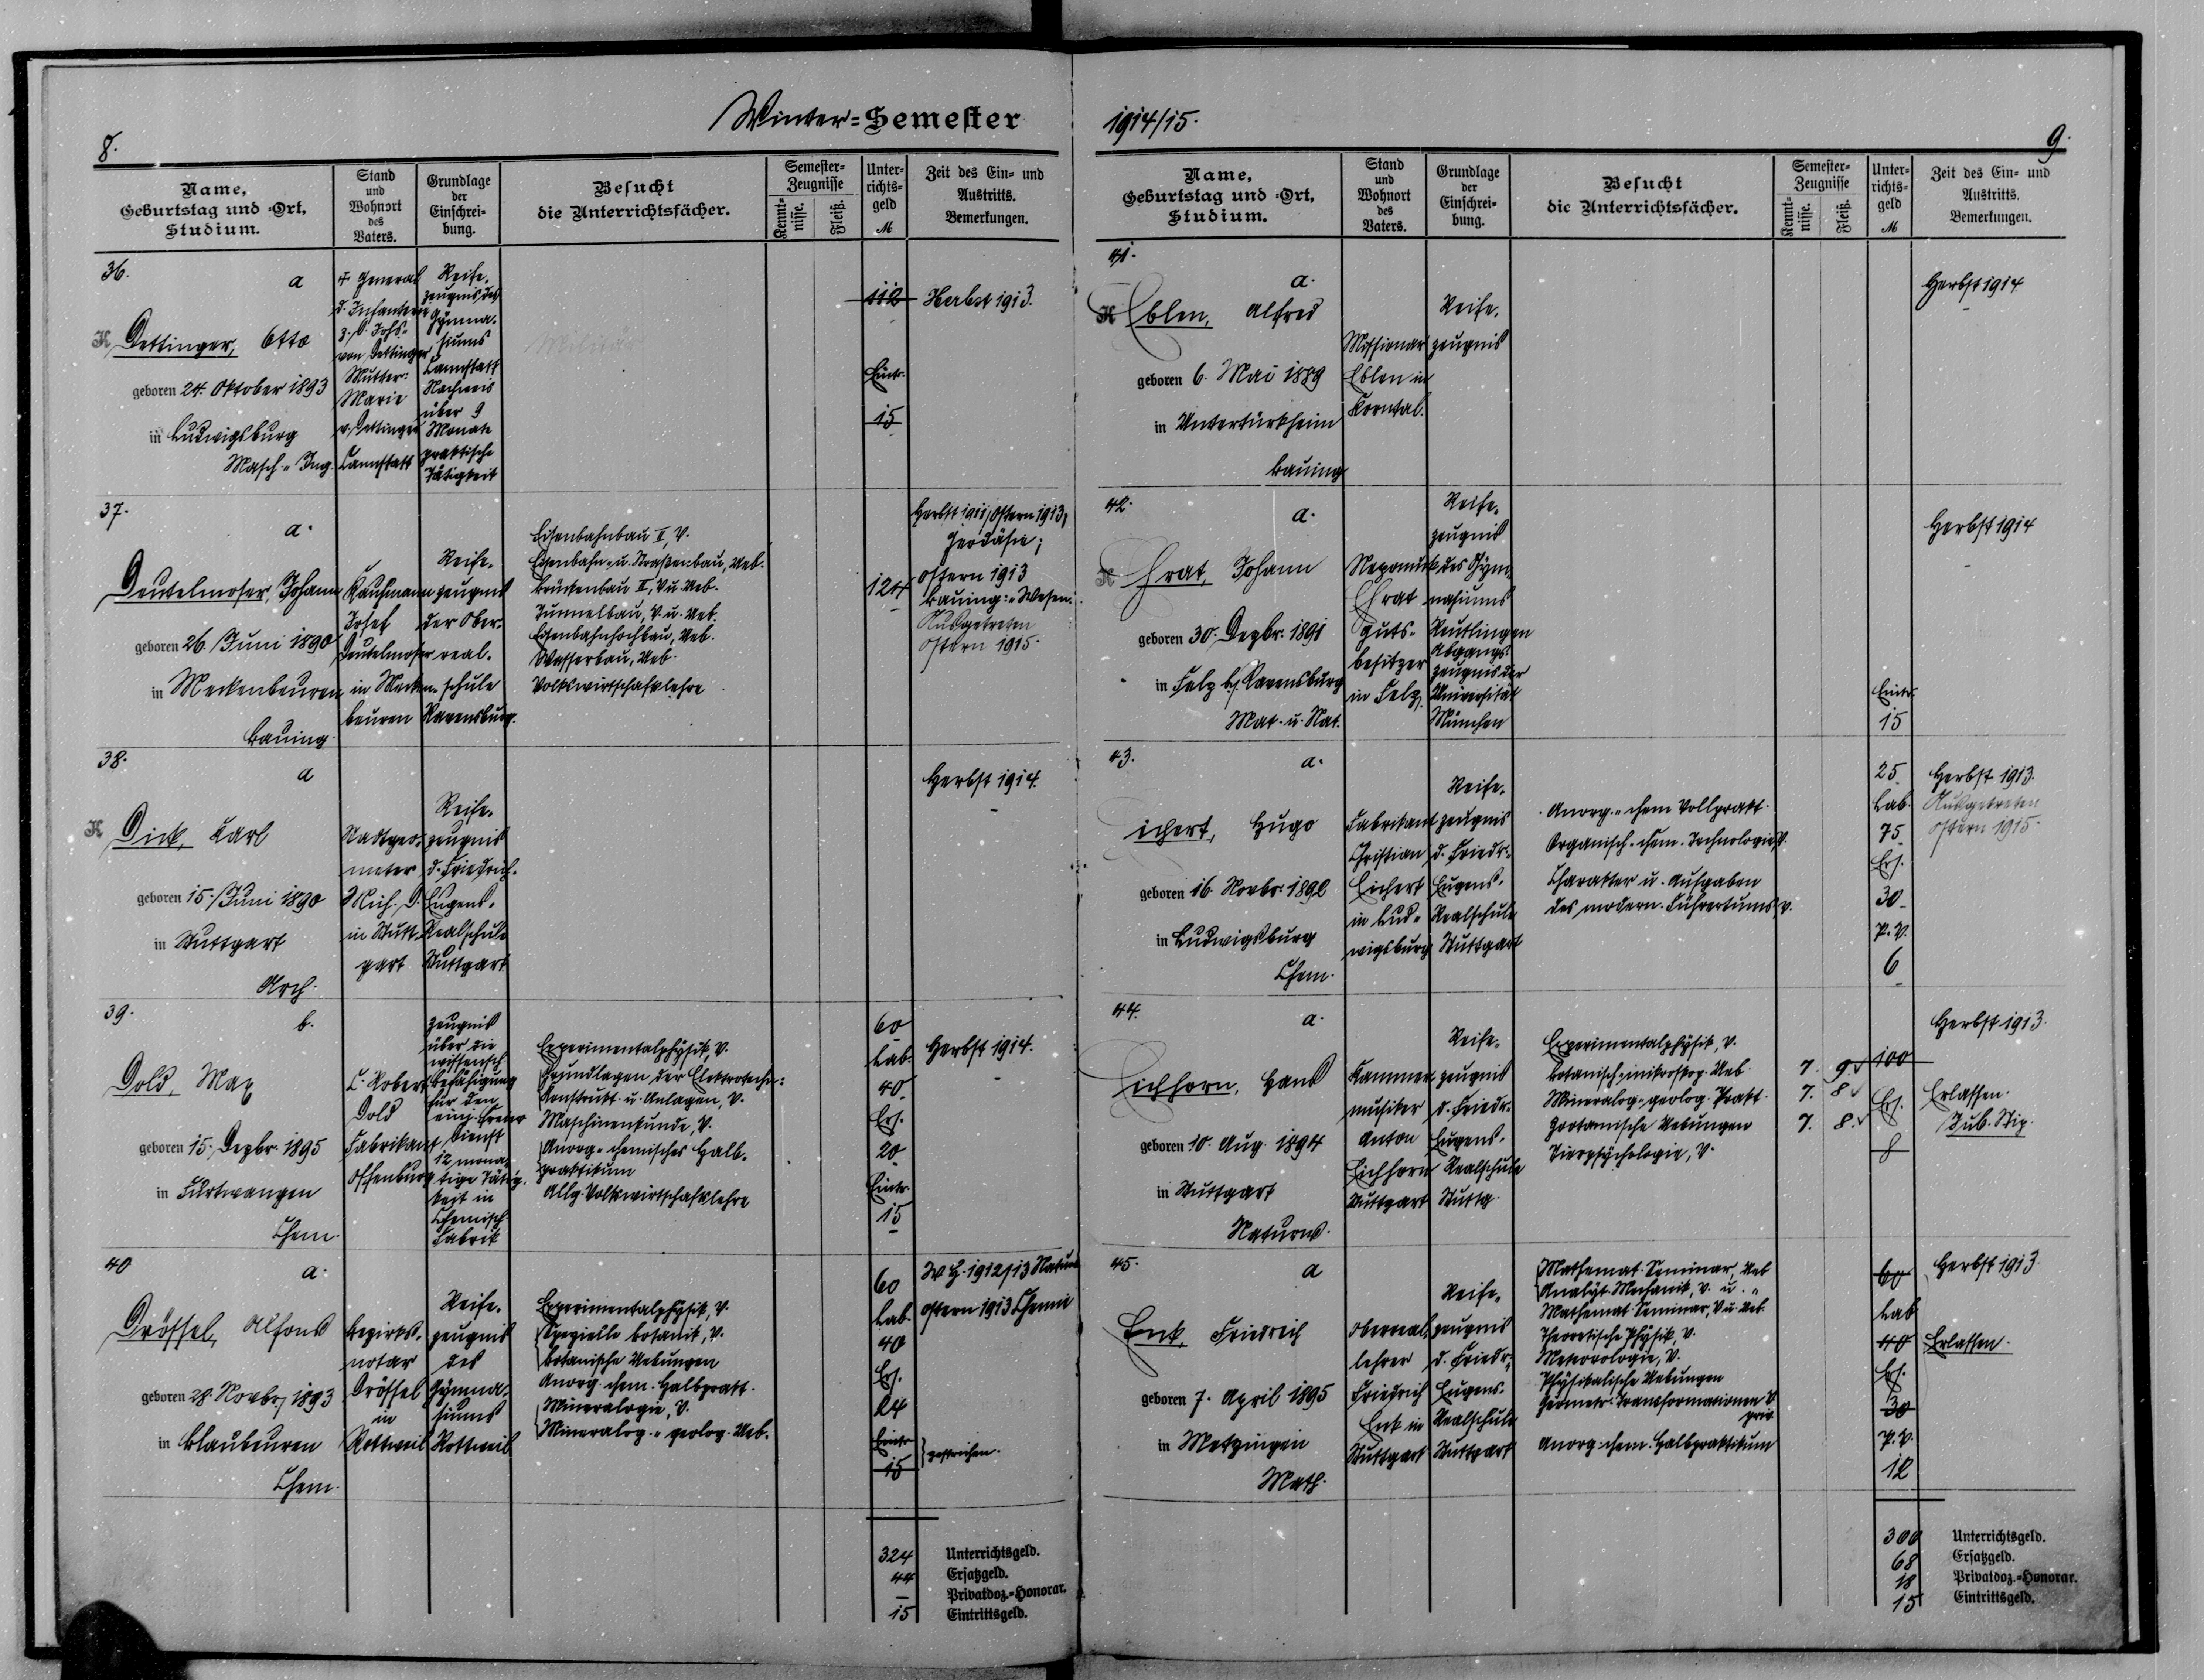 Winter=Semester
8.
Name, Geburtstag und =Ort, Studium.
Stand und Wohnort des Vaters.
Grundlage der Einschrei- bung.
Besucht die Unterrichtsfächer.
Semester= Zeugnisse
Kennt- nisse.
Fleiß.
Unter- richts= geld
M
Zeit des Ein= und Austritts. Bemerkungen.
36.
a
K Dettinger, Otto
geboren 24. Oktober 1893
in Ludwigsburg
Masch.- Ing.
† General
d. Infanterie
z. D. Johs.
von Dettinger
Mutter:
Marie
v. Dettinger
Cannstatt
Reife-
zeugnis des
Gymna-
siums
Cannstatt
Nachweis
über 9
Monate
praktische
Tätigkeit
112
Eintr.
15
Herbst 1913.
37.
a.
Deutelmoser, Johann
geboren 26. Juni 1890
in Meckenbeuren
Bauing.
Kaufmann
Josef
Deutelmoser
in Mecken-
beuren
Reife-
zeugnis
der Ober-
real-
schule
Ravensburg.
Eisenbahnbau II, V.
Eisenbahn- u. Straßenbau, Ueb.
Brückenbau II, V. u. Ueb.
Tunnelbau, V. u. Ueb.
Eisenbahnhochbau, Ueb.
Wasserbau, Ueb.
Volkswirtschaftslehre
124
Herbst 1911/Ostern 1913,
Geodäsie;
Ostern 1913
Bauing.-Wesen.
Ausgetreten
Ostern 1915.
38.
a
K Dick, Karl
geboren 15. Juni 1890
in Stuttgart
Arch.
Stadtgeo-
meter
Mich. D.
in Stutt-
gart
Reife-
zeugnis
d. Friedrich-
Eugens-
Realschule
Stuttgart
Herbst 1914.
39.
b.
Dold, Max
geboren 15. Dezbr. 1895
in Furtwangen
Chem.
C. Robert
Dold
Fabrikant
Offenburg
Zeugnis
über die
wissensch.
Befähigung
für den
einj. freiw.
Dienst
12 mona-
tige Tätig-
keit in
Chemisch.
Fabrik
Experimentalphysik, V.
Grundlagen der Elektrotechn.:
Konstrukt. u. Anlagen, V.
Maschinenkunde, V.
Anorg.- chemisches Halb-
praktikum
Allg. Volkswirtschaftslehre
60
Lab.
40
Ers.
20
Eintr.
15
Herbst 1914.
40
a.
Drössel, Alfons
geboren 28. Novbr. 1893
in Blaubeuren
Chem.
Bezirks-
notar
Drössel
in
Rottweil
Reife-
zeugnis
des
Gymna-
siums
Rottweil
Experimentalphysik, V.
Spezielle Botanik, V.
Botanische Uebungen
Anorg. chem. Halbprakt.
Mineralogie, V.
Mineralog.- geolog. Ueb.
60
Lab.
40
Ers.
24
Eintr.
15
} gestrichen.
1912/13
Ostern 1913 Chemie
324 Unterrichtsgeld.
44 Ersatzgeld.
– Privatdoz.=Honorar.
15 Eintrittsgeld.
1914/15.
9.
Name, Geburtstag und =Ort, Studium.
Stand und Wohnort des Vaters.
Grundlage der Einschrei- bung.
Besucht die Unterrichtsfächer.
Semester= Zeugnisse
Kennt- nisse.
Fleiß.
Unter- richts= geld
M
Zeit des Ein= und Austritts. Bemerkungen.
41.
a.
K Eblen, Alfred
geboren 6. Mai 1889
in Untertürkheim
Bauing
Missionar
Eblen in
Korntal.
Reife-
zeugnis
Herbst 1914
42.
a.
K Ehrat, Johann
geboren 30. Dezbr. 1891
in Felz b/ Ravensburg
Mat. u. Nat.
Nepomuk
Ehrat
Guts-
besitzer
in Felz.
Reife-
zeugnis
des Gym-
nasiums
Reutlingen
Abgangs-
zeugnis der
Universität
München
Eintr.
15
Herbst 1914
43.
a.
Eichert, Hugo
geboren 16. Novbr. 1892
in Ludwigsburg
Chem.
Fabrikant
Christian
Eichert
in Lud-
wigsburg
Reife-
zeugnis
d. Friedr.-
Eugens-
Realschule
Stuttgart
Anorg.- chem Vollprakt.
Organisch- chem. Technologie V.
Charakter u. Aufgaben
des modern. Führertums V.
25
Lab.
75
Ers.
30
P.V.
6
Herbst 1913.
Ausgetreten
Ostern 1915.
44.
a.
Eichhorn, Hans
geboren 10. Aug. 1894
in Stuttgart
Naturw.
Kammer-
musiker
Anton
Eichhorn
Stuttgart
Reife-
zeugnis
d. Friedr.
Eugens-
Realschule
Stuttg.
Experimentalphysik, V.
Botanisch- mikroskop. Ueb.
Mineralog.- geolog. Prakt.
Zootomische Uebungen
Tierpsychologie, V.
7. 9.
7. 8
7. 8.
100
Ers.
8
Herbst 1913.
Erlassen.
Jub. Stip.
45.
a
Enk, Friedrich
geboren 7. April 1895
in Metzingen
Math.
Oberreal-
lehrer
Friedrich
Enk in
Stuttgart
Reife-
zeugnis
d. Friedr.-
Eugens-
Realschule
Stuttgart
Mathemat. Seminar, Ueb
Analyt. Mechanik, V. u. "
Mathemat. Seminar, V u. Ueb.
Theoretische Physik, V.
Meteorologie, V.
Physikalische Uebungen
Geometr. Transformationen V
priv
Anorg. chem. Halbpraktikum
60
Lab
40
Ers.
30
P.V.
12
Herbst 1913
Erlassen.
300 Unterrichtsgeld.
68 Ersatzgeld.
18 Privatdoz.=Honorar.
15 Eintrittsgeld.